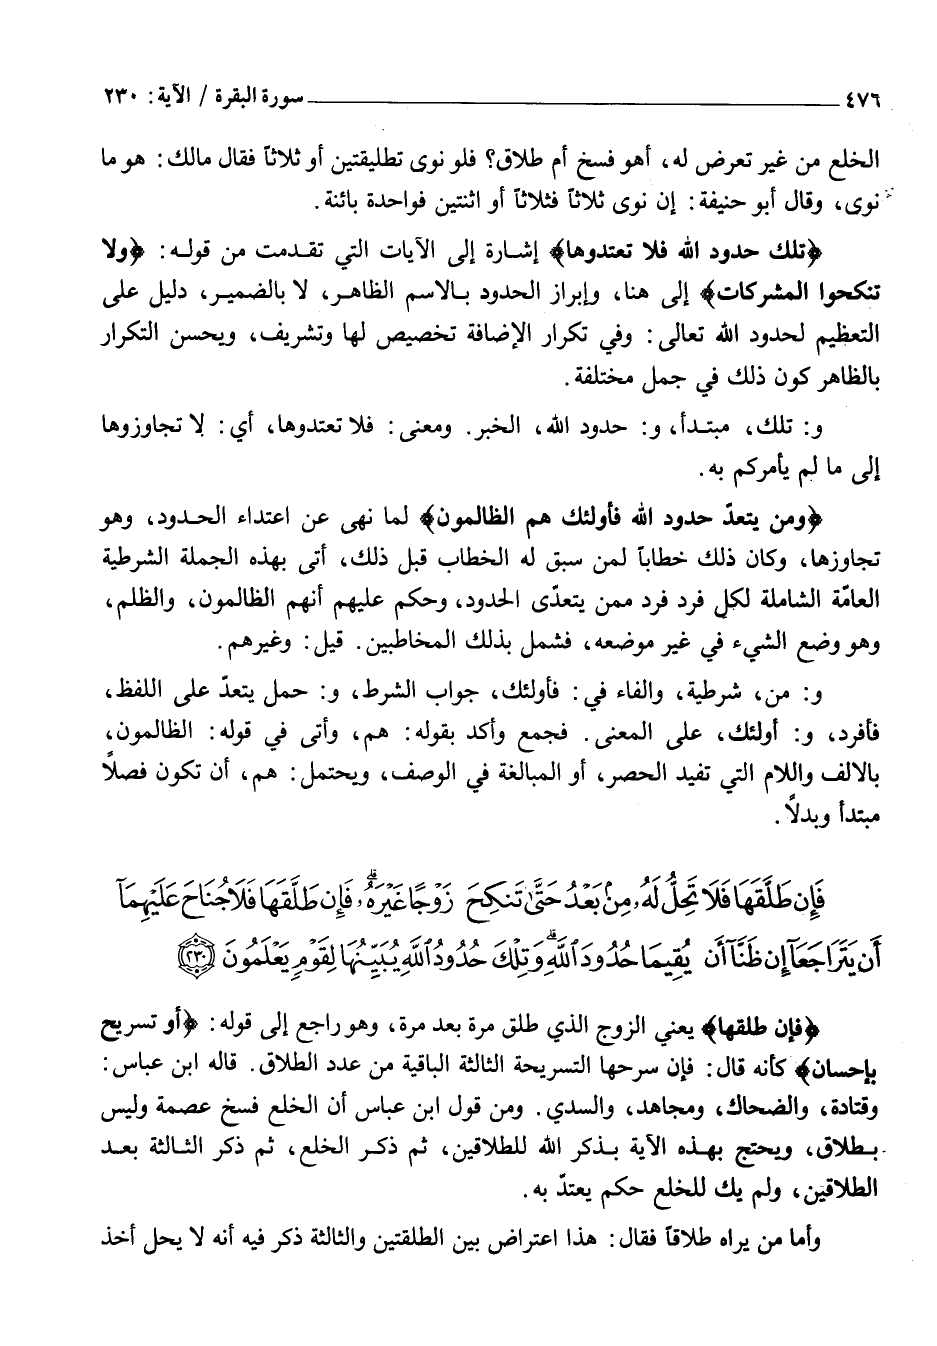 ٤٧٦ سورة البقرة / الآية: ٢٣٠
الخلع من غير تعرض له، أهو فسخ أم طلاق؟ فلو نوى تطليقتين أو ثلاثاً فقال مالك: هو ما
نوى، وقال أبو حنيفة: إن نوى ثلاثاً فثلاثاً أو اثنتين فواحدة بائنة.
﴿تلك حدود الله فلا تعتدوها﴾ إشارة إلى الآيات التي تقدمت من قوله: ﴿ولا
تنكحوا المشركات﴾ إلى هنا، وإبراز الحدود بالاسم الظاهر، لا بالضمير، دليل على
التعظيم لحدود الله تعالى: وفي تكرار الإضافة تخصيص لها وتشريف، ويحسن التكرار
بالظاهر كون ذلك في جمل مختلفة.
و: تلك، مبتدأ، و: حدود الله، الخبر. ومعنى: فلا تعتدوها، أي: لا تجاوزوها
إلى ما لم يأمركم به.
﴿ومن يتعدّ حدود الله فأولئك هم الظالمون﴾ لما نهى عن اعتداء الحدود، وهو
تجاوزها، وكان ذلك خطاباً لمن سبق له الخطاب قبل ذلك، أتى بهذه الجملة الشرطية
العامّة الشاملة لكل فرد فرد ممن يتعدّى الحدود، وحكم عليهم أنهم الظالمون، والظلم،
وهو وضع الشيء في غير موضعه، فشمل بذلك المخاطبين. قيل: وغيرهم.
و: من، شرطية، والفاء في: فأولئك، جواب الشرط، و: حمل يتعدّ على اللفظ،
فأفرد، و: أولئك، على المعنى. فجمع وأكد بقوله: هم، وأتى في قوله: الظالمون،
بالالف واللام التي تفيد الحصر، أو المبالغة في الوصف، ويحتمل: هم، أن تكون فصلاً
مبتدأ وبدلاً.
فَإِن طَلَّقَهَا فَلَا تَحِلُّ لَهُۥ مِنۢ بَعْدُ حَتَّىٰ تَنكِحَ زَوْجًا غَيْرَهُۥۗ فَإِن طَلَّقَهَا فَلَا جُنَاحَ عَلَيْهِمَآ
أَن يَتَرَاجَعَآ إِن ظَنَّآ أَن يُقِيمَا حُدُودَ ٱللَّهِۗ وَتِلْكَ حُدُودُ ٱللَّهِ يُبَيِّنُهَا لِقَوْمٍ يَعْلَمُونَ ٢٣٠
﴿فإن طلقها﴾ يعني الزوج الذي طلق مرة بعد مرة، وهو راجع إلى قوله: ﴿أو تسريح
بإحسان﴾ كأنه قال: فإن سرحها التسريحة الثالثة الباقية من عدد الطلاق. قاله ابن عباس:
وقتادة، والضحاك، ومجاهد، والسدي. ومن قول ابن عباس أن الخلع فسخ عصمة وليس
بطلاق، ويحتج بهذه الآية بذكر الله للطلاقين، ثم ذكر الخلع، ثم ذكر الثالثة بعد
الطلاقين، ولم يك للخلع حكم يعتدّ به.
وأما من يراه طلاقاً فقال: هذا اعتراض بين الطلقتين والثالثة ذكر فيه أنه لا يحل أخذ